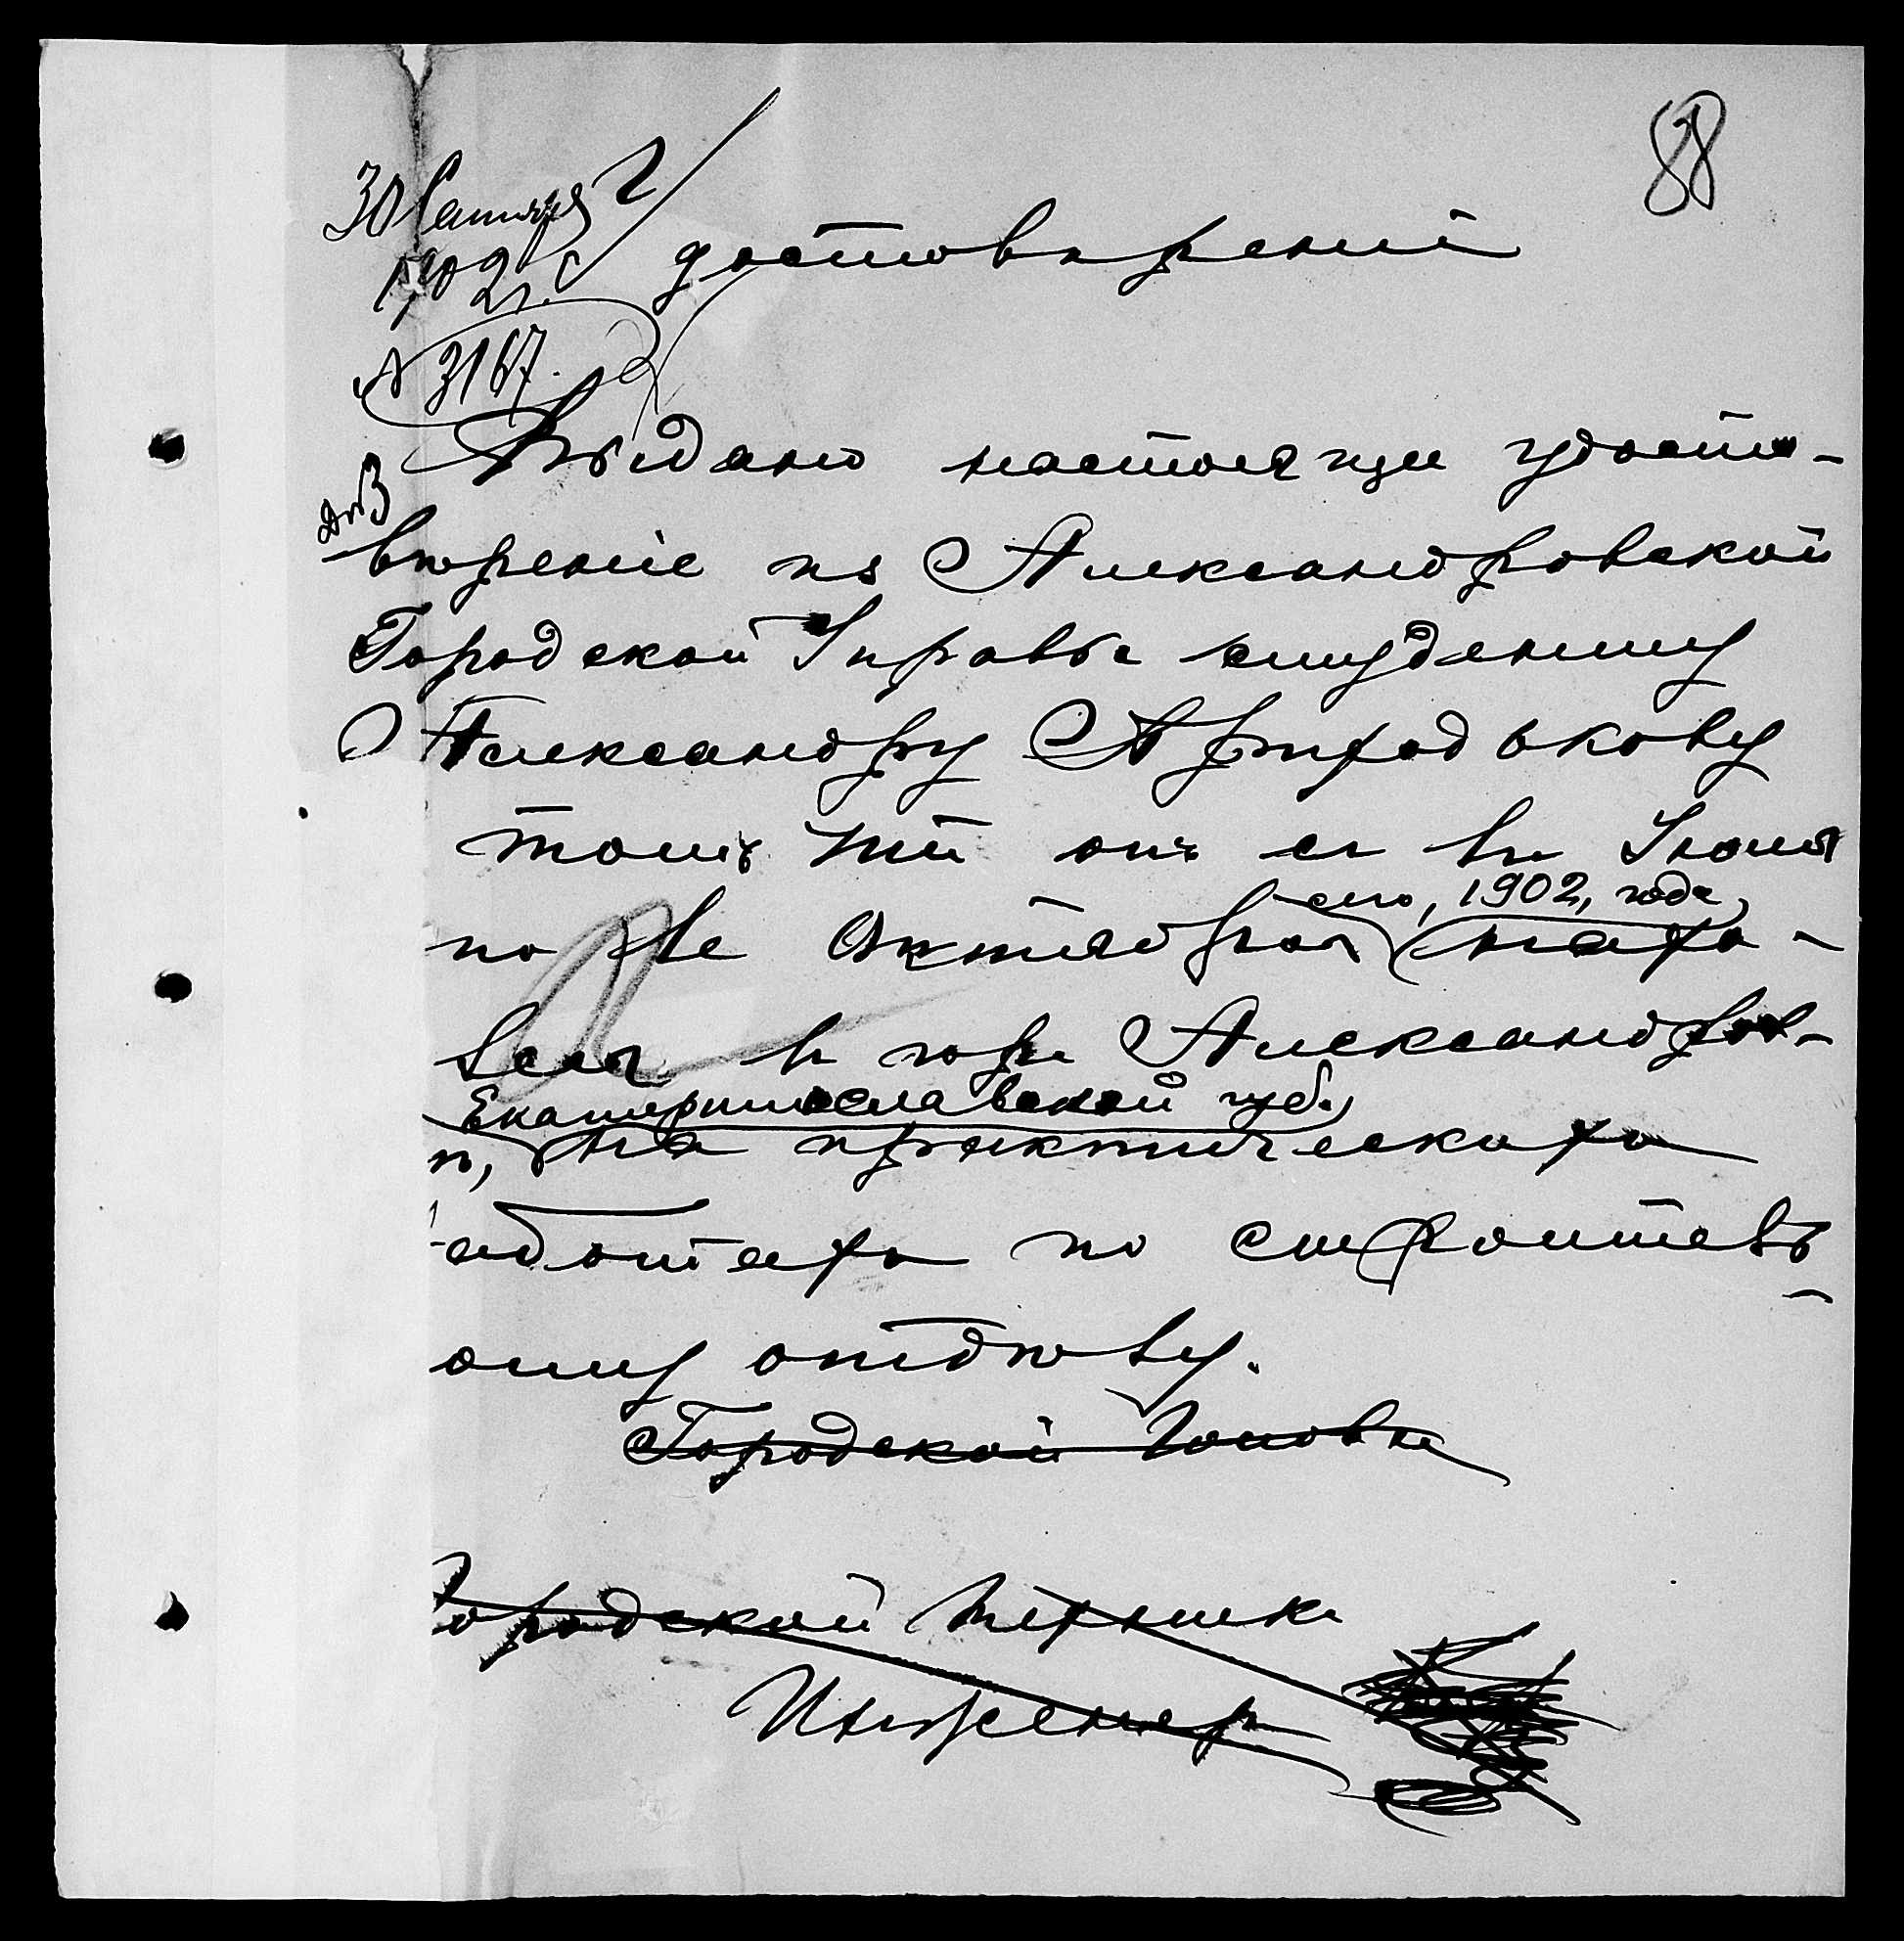 88
30 Сентября
1902 г.
Удостовѣреніе
№ 3167.
Выдано настоящее удосто-
вѣреніе изъ Александровской
Городской Управы студенту
Александру Приходькову
томъ что онъ съ Іюня
по Октября сего, 1902, года, нахо-
ился въ гор. Александров-
ѣ, Екатеринославской губ., на практическихъ
аботахъ по строитель-
ому отдѣлу.
Городской Голова
Городской техникъ
Инженеръ